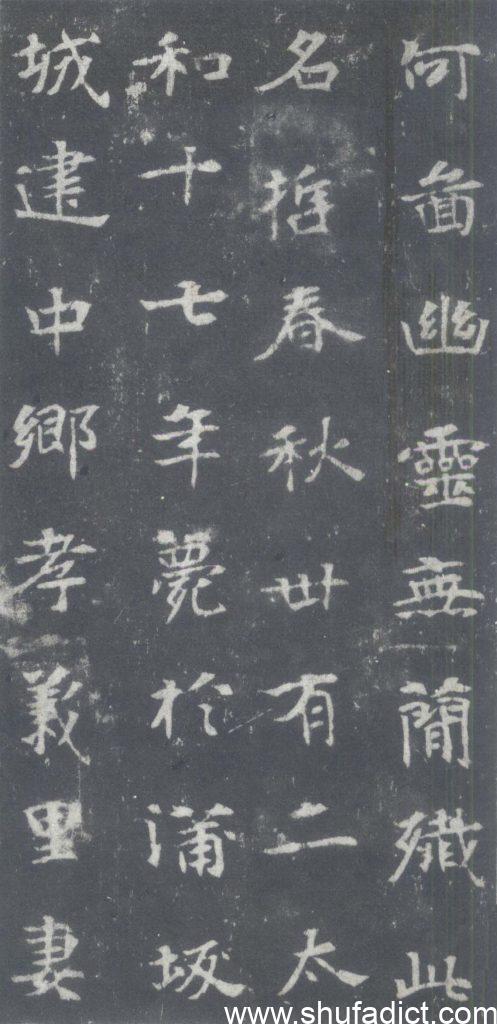 何啚幽靈無簡殱此
名哲春秋卌有二太
和十七年薨於蒲坂
城建中鄉孝義里妻
www.shufadict.com